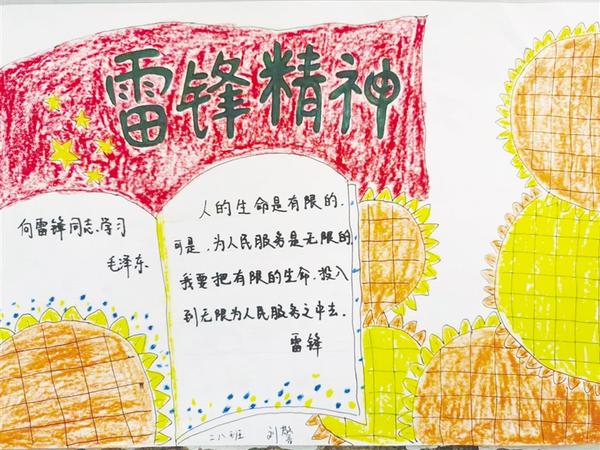 雷锋精神
向雷锋同志学习
毛泽东
人的生命是有限的.
可是,为人民服务是无限的
我要把有限的生命.投入
到无限为人民服务之中去.
雷锋
二八班 刘馨